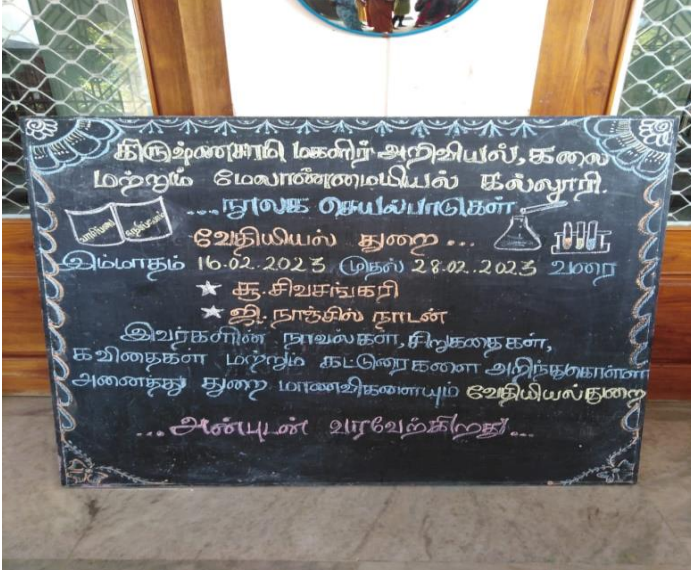 கிருஷ்ணசாமி மகளிர் அறிவியல், கலை
மற்றும் மேலாண்மையியல் கல்லூரி.
...நூலக செயல்பாடுகள்
வேதியியல் துறை...
இம்மாதம் 16.02.2023 முதல் 28.02.2023 வரை
★ சூ.சிவசங்கரி
★ ஜி.நாஞ்சில் நாடன்
இவர்களின் நாவல்கள், சிறுகதைகள்,
கவிதைகள் மற்றும் கட்டுரைகளை அறிந்துகொள்ள
அனைத்து துறை மாணவிகளையும் வேதியியல்துறை
...அன்புடன் வரவேற்கிறது...